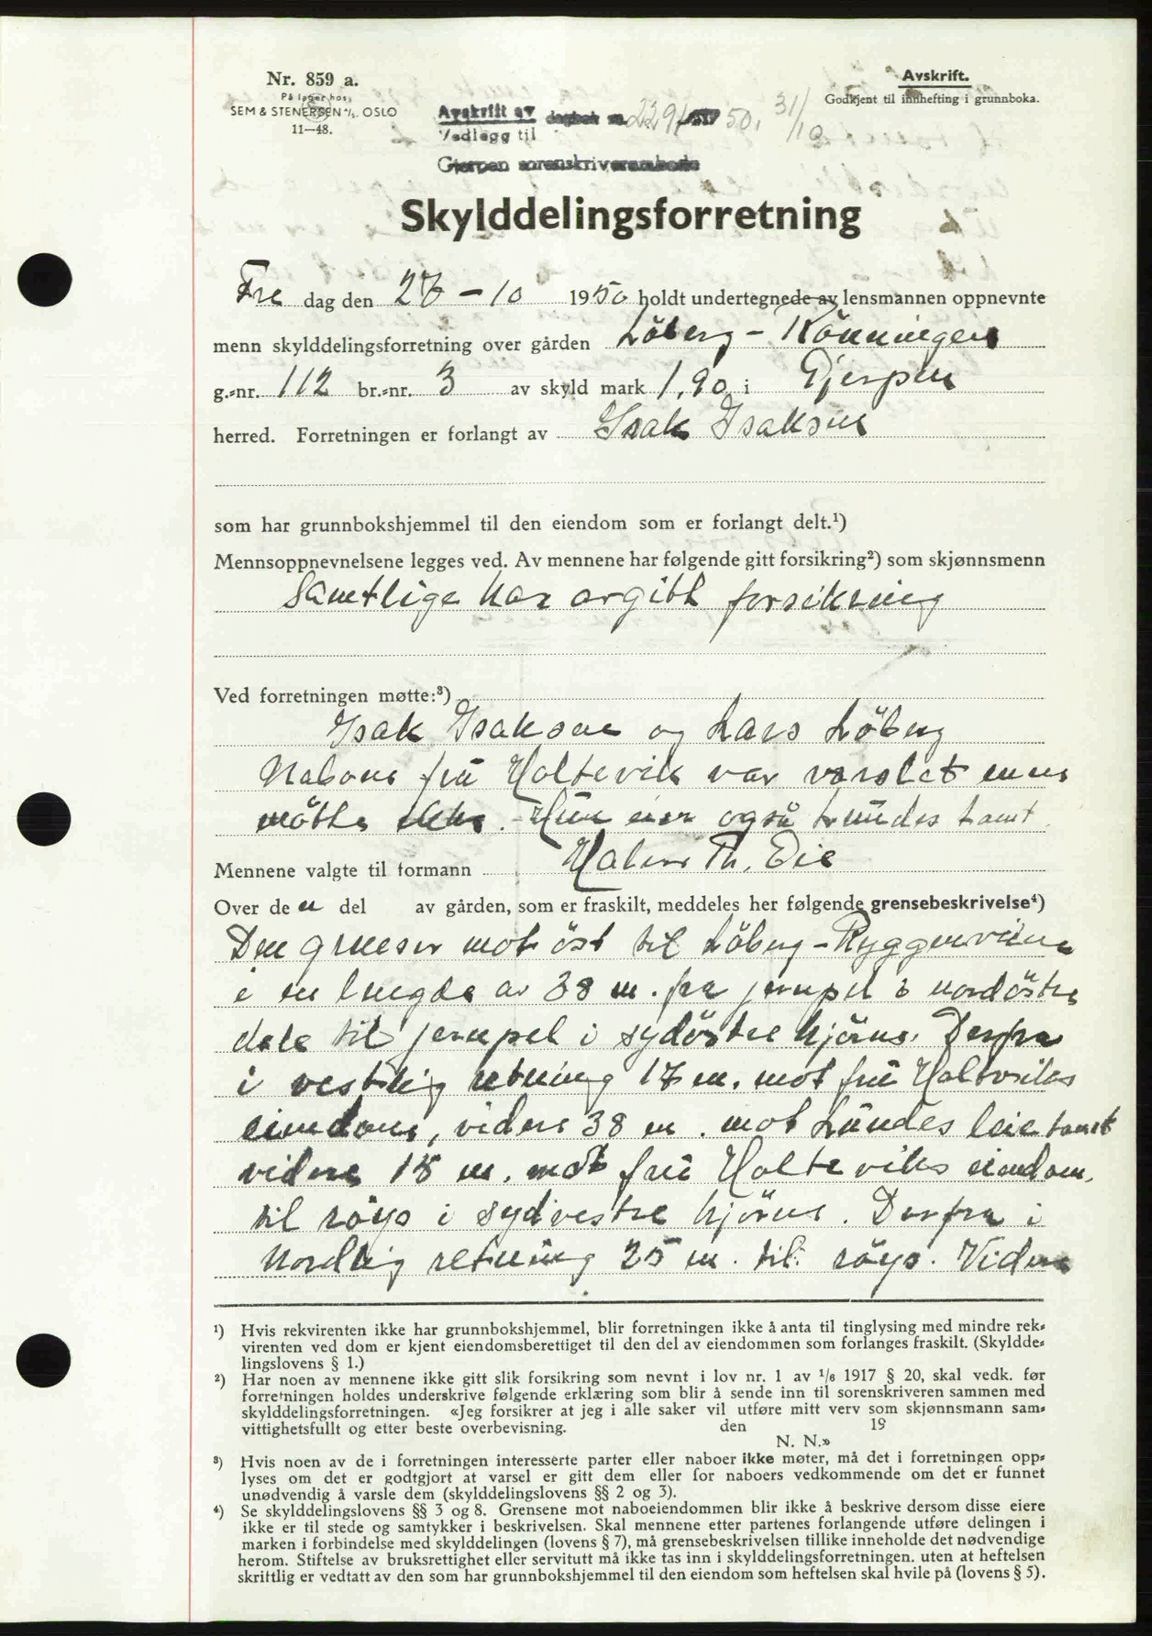 Nr. 859 a.
På lager hos
SEM & STENERSEN A/S. OSLO
11—48.
Avskrift.
Godkjent til innhefting i grunnboka.
Avskrift av dagbok nr. 2291 1950, 31/10
Vedlegg til
Gjerpen sorenskriverembede
Skylddelingsforretning
Fre dag den 27 - 10 1950 holdt undertegnede av lensmannen oppnevnte
menn skylddelingsforretning over gården Löberg - Rönningen
g.-nr. 112 br.-nr. 3 av skyld mark 1,90 i Gjerpen
herred. Forretningen er forlangt av Isak Isaksen
som har grunnbokshjemmel til den eiendom som er forlangt delt.¹)
Mennsoppnevnelsene legges ved. Av mennene har følgende gitt forsikring²) som skjønnsmenn
Samtlige har avgitt forsikring
Ved forretningen møtte:³)
Isak Isaksen og Lars Löberg
Naboen frü Holtevik var varslet men
mötte ikke. Hün eier også
Mennene valgte til formann Halvor Th. Eie
Over de n del av gården, som er fraskilt, meddeles her følgende grensebeskrivelse⁴)
Den grenser mot öst til Löberg - Ryggenveien
i en lengde av 38 m. fra jernpel i nordöstre
dele til jernpel i sydöstre hjörne. Derfra
i vestlig retning 17 m. mot frü Holteviks
eiendom, videre 38 m. mot Lündes leietomt
videre 18 m. mot frü Holteviks eiendom,
til röys i sydvestre hjörne. Derfra i
Nordlig retning 25 m. til röys. Videre
¹) Hvis rekvirenten ikke har grunnbokshjemmel, blir forretningen ikke å anta til tinglysing med mindre rek-
virenten ved dom er kjent eiendomsberettiget til den del av eiendommen som forlanges fraskilt. (Skyldde-
lingslovens § 1.)
²) Har noen av mennene ikke gitt slik forsikring som nevnt i lov nr. 1 av 1/6 1917 § 20, skal vedk. før
forretningen holdes underskrive følgende erklæring som blir å sende inn til sorenskriveren sammen med
skylddelingsforretningen. «Jeg forsikrer at jeg i alle saker vil utføre mitt verv som skjønnsmann sam-
vittighetsfullt og etter beste overbevisning. den 19
N. N.»
³) Hvis noen av de i forretningen interesserte parter eller naboer ikke møter, må det i forretningen opp-
lyses om det er godtgjort at varsel er gitt dem eller for naboers vedkommende om det er funnet
unødvendig å varsle dem (skylddelingslovens §§ 2 og 3).
⁴) Se skylddelingslovens §§ 3 og 8. Grensene mot naboeiendommen blir ikke å beskrive dersom disse eiere
ikke er til stede og samtykker i beskrivelsen. Skal mennene etter partenes forlangende utføre delingen i
marken i forbindelse med skylddelingen (lovens § 7), må grensebeskrivelsen tillike inneholde det nødvendige
herom. Stiftelse av bruksrettighet eller servitutt må ikke tas inn i skylddelingsforretningen. uten at heftelsen
skriftlig er vedtatt av den som har grunnbokshjemmel til den eiendom som heftelsen skal hvile på (lovens § 5).